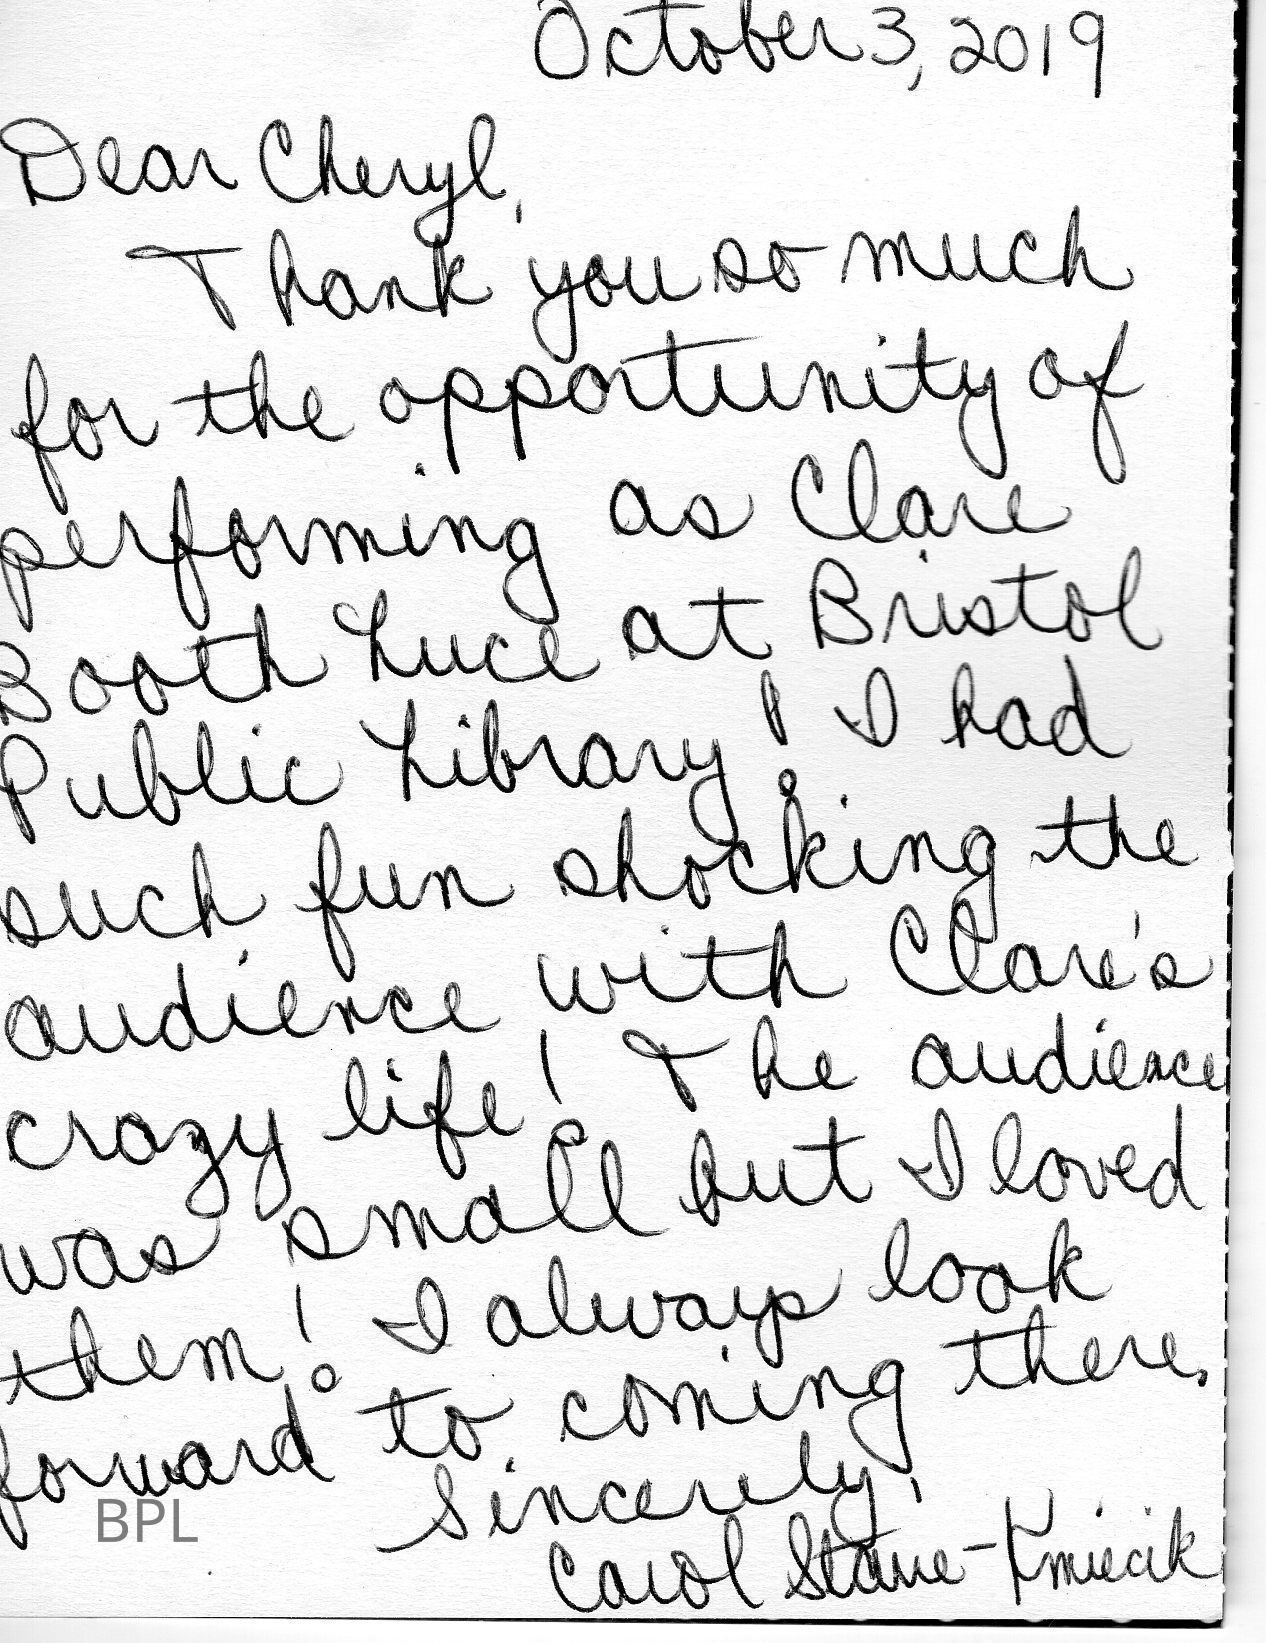 October 3, 2019
Dear Cheryl,
Thank you so much
for the opportunity of
performing as Clare
Booth Luce at Bristol
Public Library! I had
such fun shocking the
audience with Clare's
crazy life! The audience
was small but I loved
them! I always look
forward to coming there.
Sincerely,
Carol Stane-Kmiecik
BPL